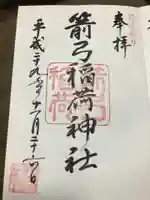 奉拝
箭弓稲荷神社
平成二十九年十一月二十六日